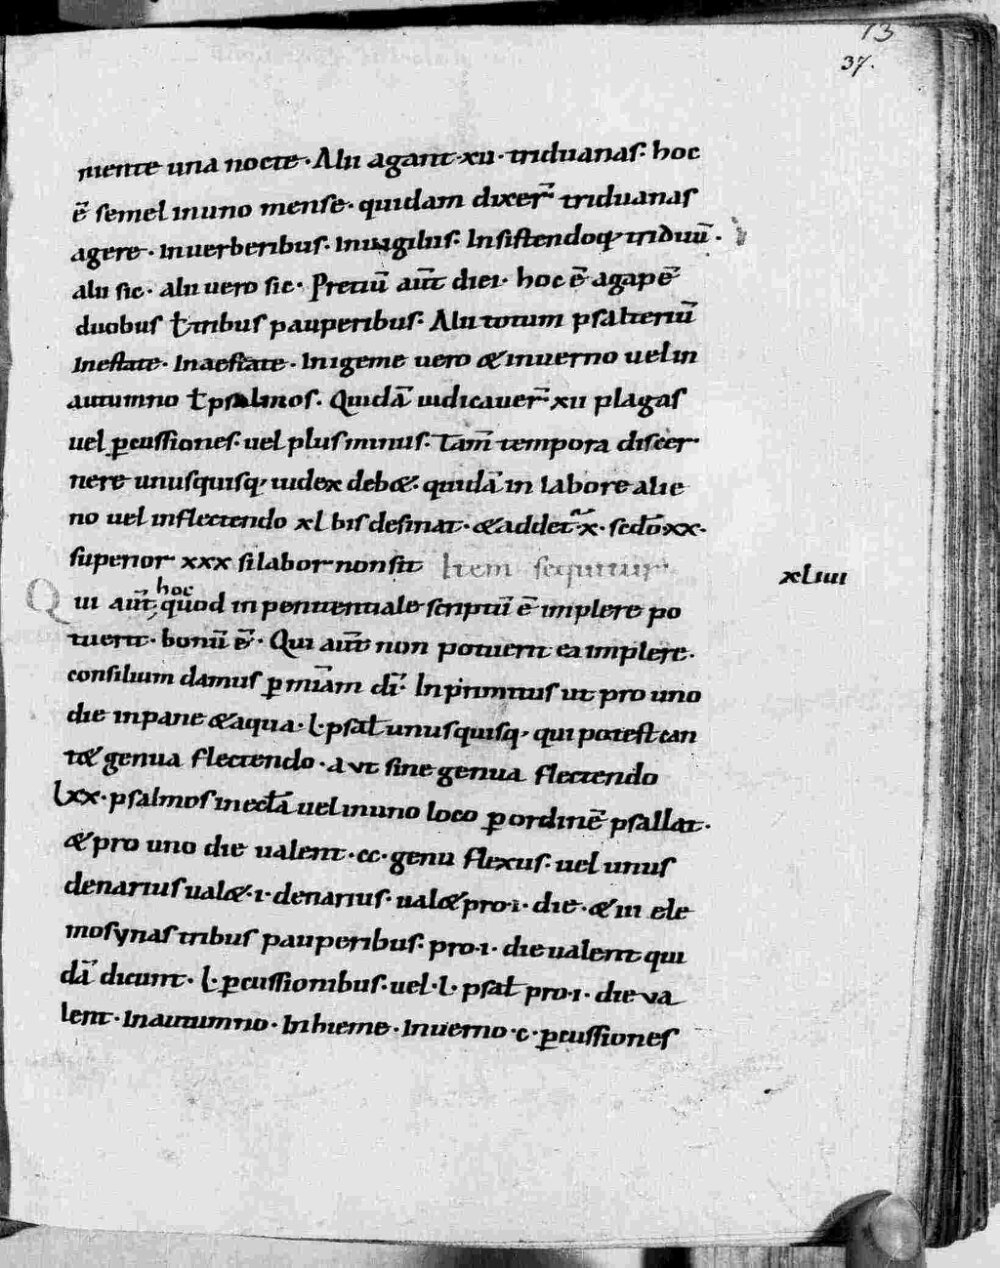 13
37.
mente una nocte · Alii agant · xii · triduanas · hoc
ē semel in uno mense · quidam dixer̄ triduanas
agere · in uerberibus · in uigiliis · Insistendoq; triduū ·
alii sic · alii uero sic · Pretiū aūt diei · hoc ē agapē
duobus ł tribus pauperibus · Alii totum psalteriū
In estate · In aestate · In igeme uero & in uerno uel in
autumno ł psalmos · Quidā iudicauer̄ xii plagas
uel p̱cussiones · uel plus minus · tam̄ tempora discer
nere unusquisq; iudex deb& · quidā in labore alie
no uel inflectendo xl bis desinat · & addet x · sed̄o xx ·
superior xxx si labor non sit Item sequitur
xliiii
Qui aūt hoc quod in penitentiale scriptū ē implere po
tuerit · bonū ē · Qui aūt non potuerit ea implere ·
consilium damus p̱ miām dī · In primitus ut pro uno
die in pane & aqua · l · psał unusquisq; qui potest can
t& genua flectendo · aut sine genua flectendo
lxx · psalmos in eccłā uel in uno loco p̱ ordinē psallat ·
& pro uno die ualent · cc · genu flexus · uel unus
denarius ual& · i · denarius · ual& pro · i · die · & iii ele
mosynas tribus pauperibus · pro · i · die ualent qui
dā dicunt · l · p̱cussionibus · uel · l · psał pro · i · die va
lent · In autumno · In hieme · In uerno · c · p̱cussiones